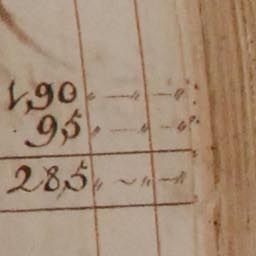 190 " — " — "
95 " — " — "
285 " ~ " — "